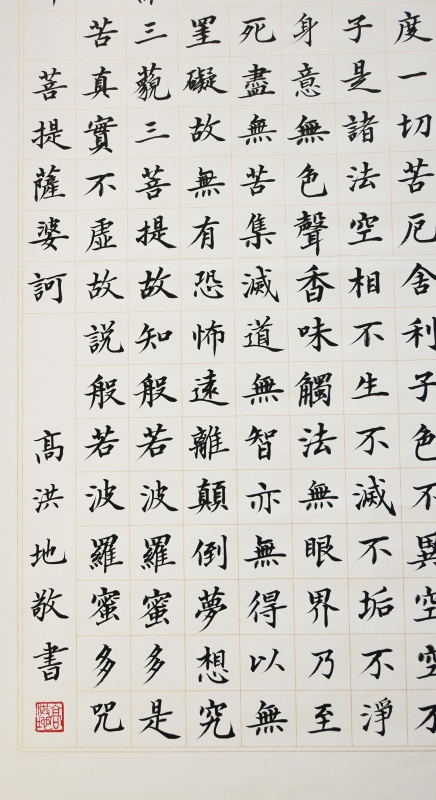 度一切苦厄舍利子色不異空空不
子是諸法空相不生不滅不垢不淨
身意無色聲香味觸法無眼界乃至
死盡無苦集滅道無智亦無得以無
罣礙故無有恐怖遠離顛倒夢想究
三藐三菩提故知般若波羅蜜多是
苦真實不虛故説般若波羅蜜多咒
菩提薩婆訶
高洪地敬書